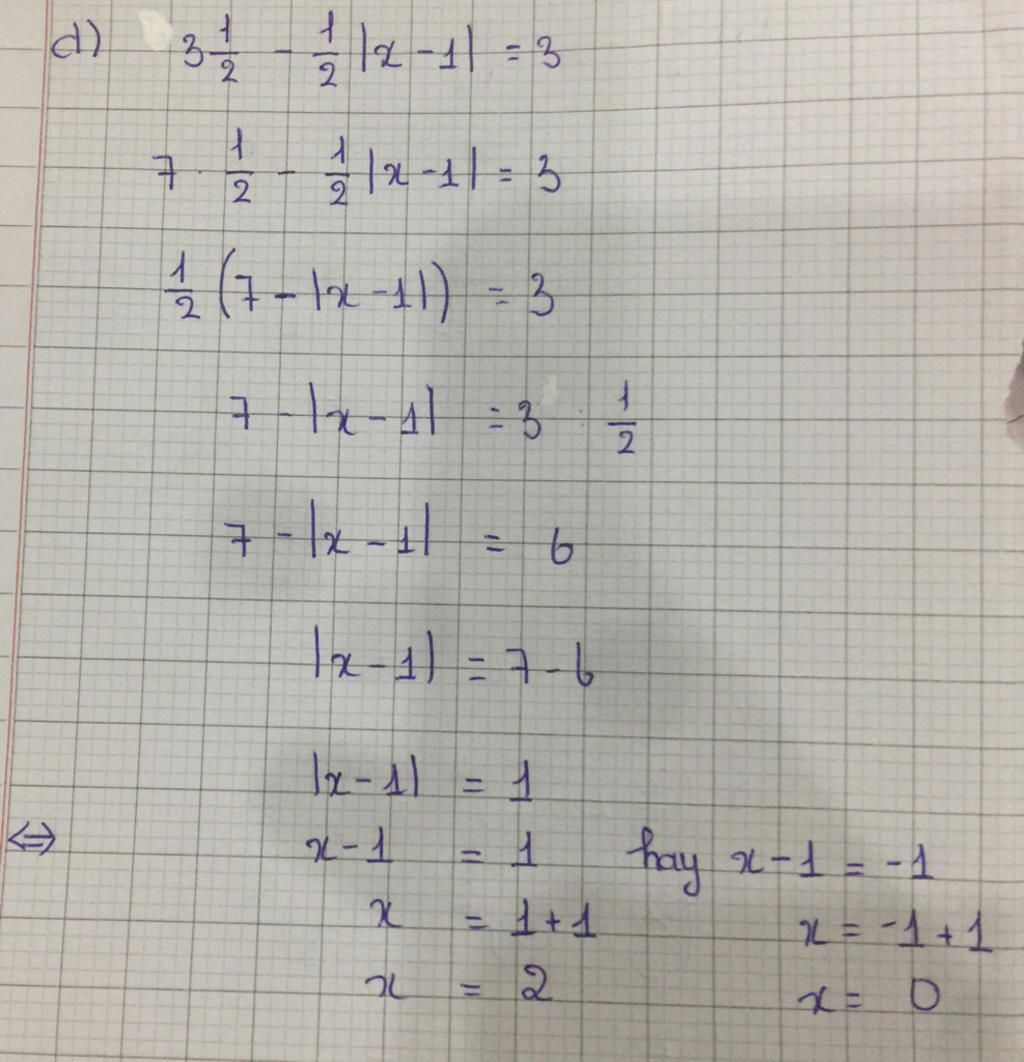 d) 3 1/2 - 1/2 |x - 1| = 3
7 . 1/2 - 1/2 |x - 1| = 3
1/2 (7 - |x - 1|) = 3
7 - |x - 1| = 3 : 1/2
7 - |x - 1| = 6
|x - 1| = 7 - 6
|x - 1| = 1
⇔ x - 1 = 1 hay x - 1 = -1
x = 1 + 1 x = -1 + 1
x = 2 x = 0